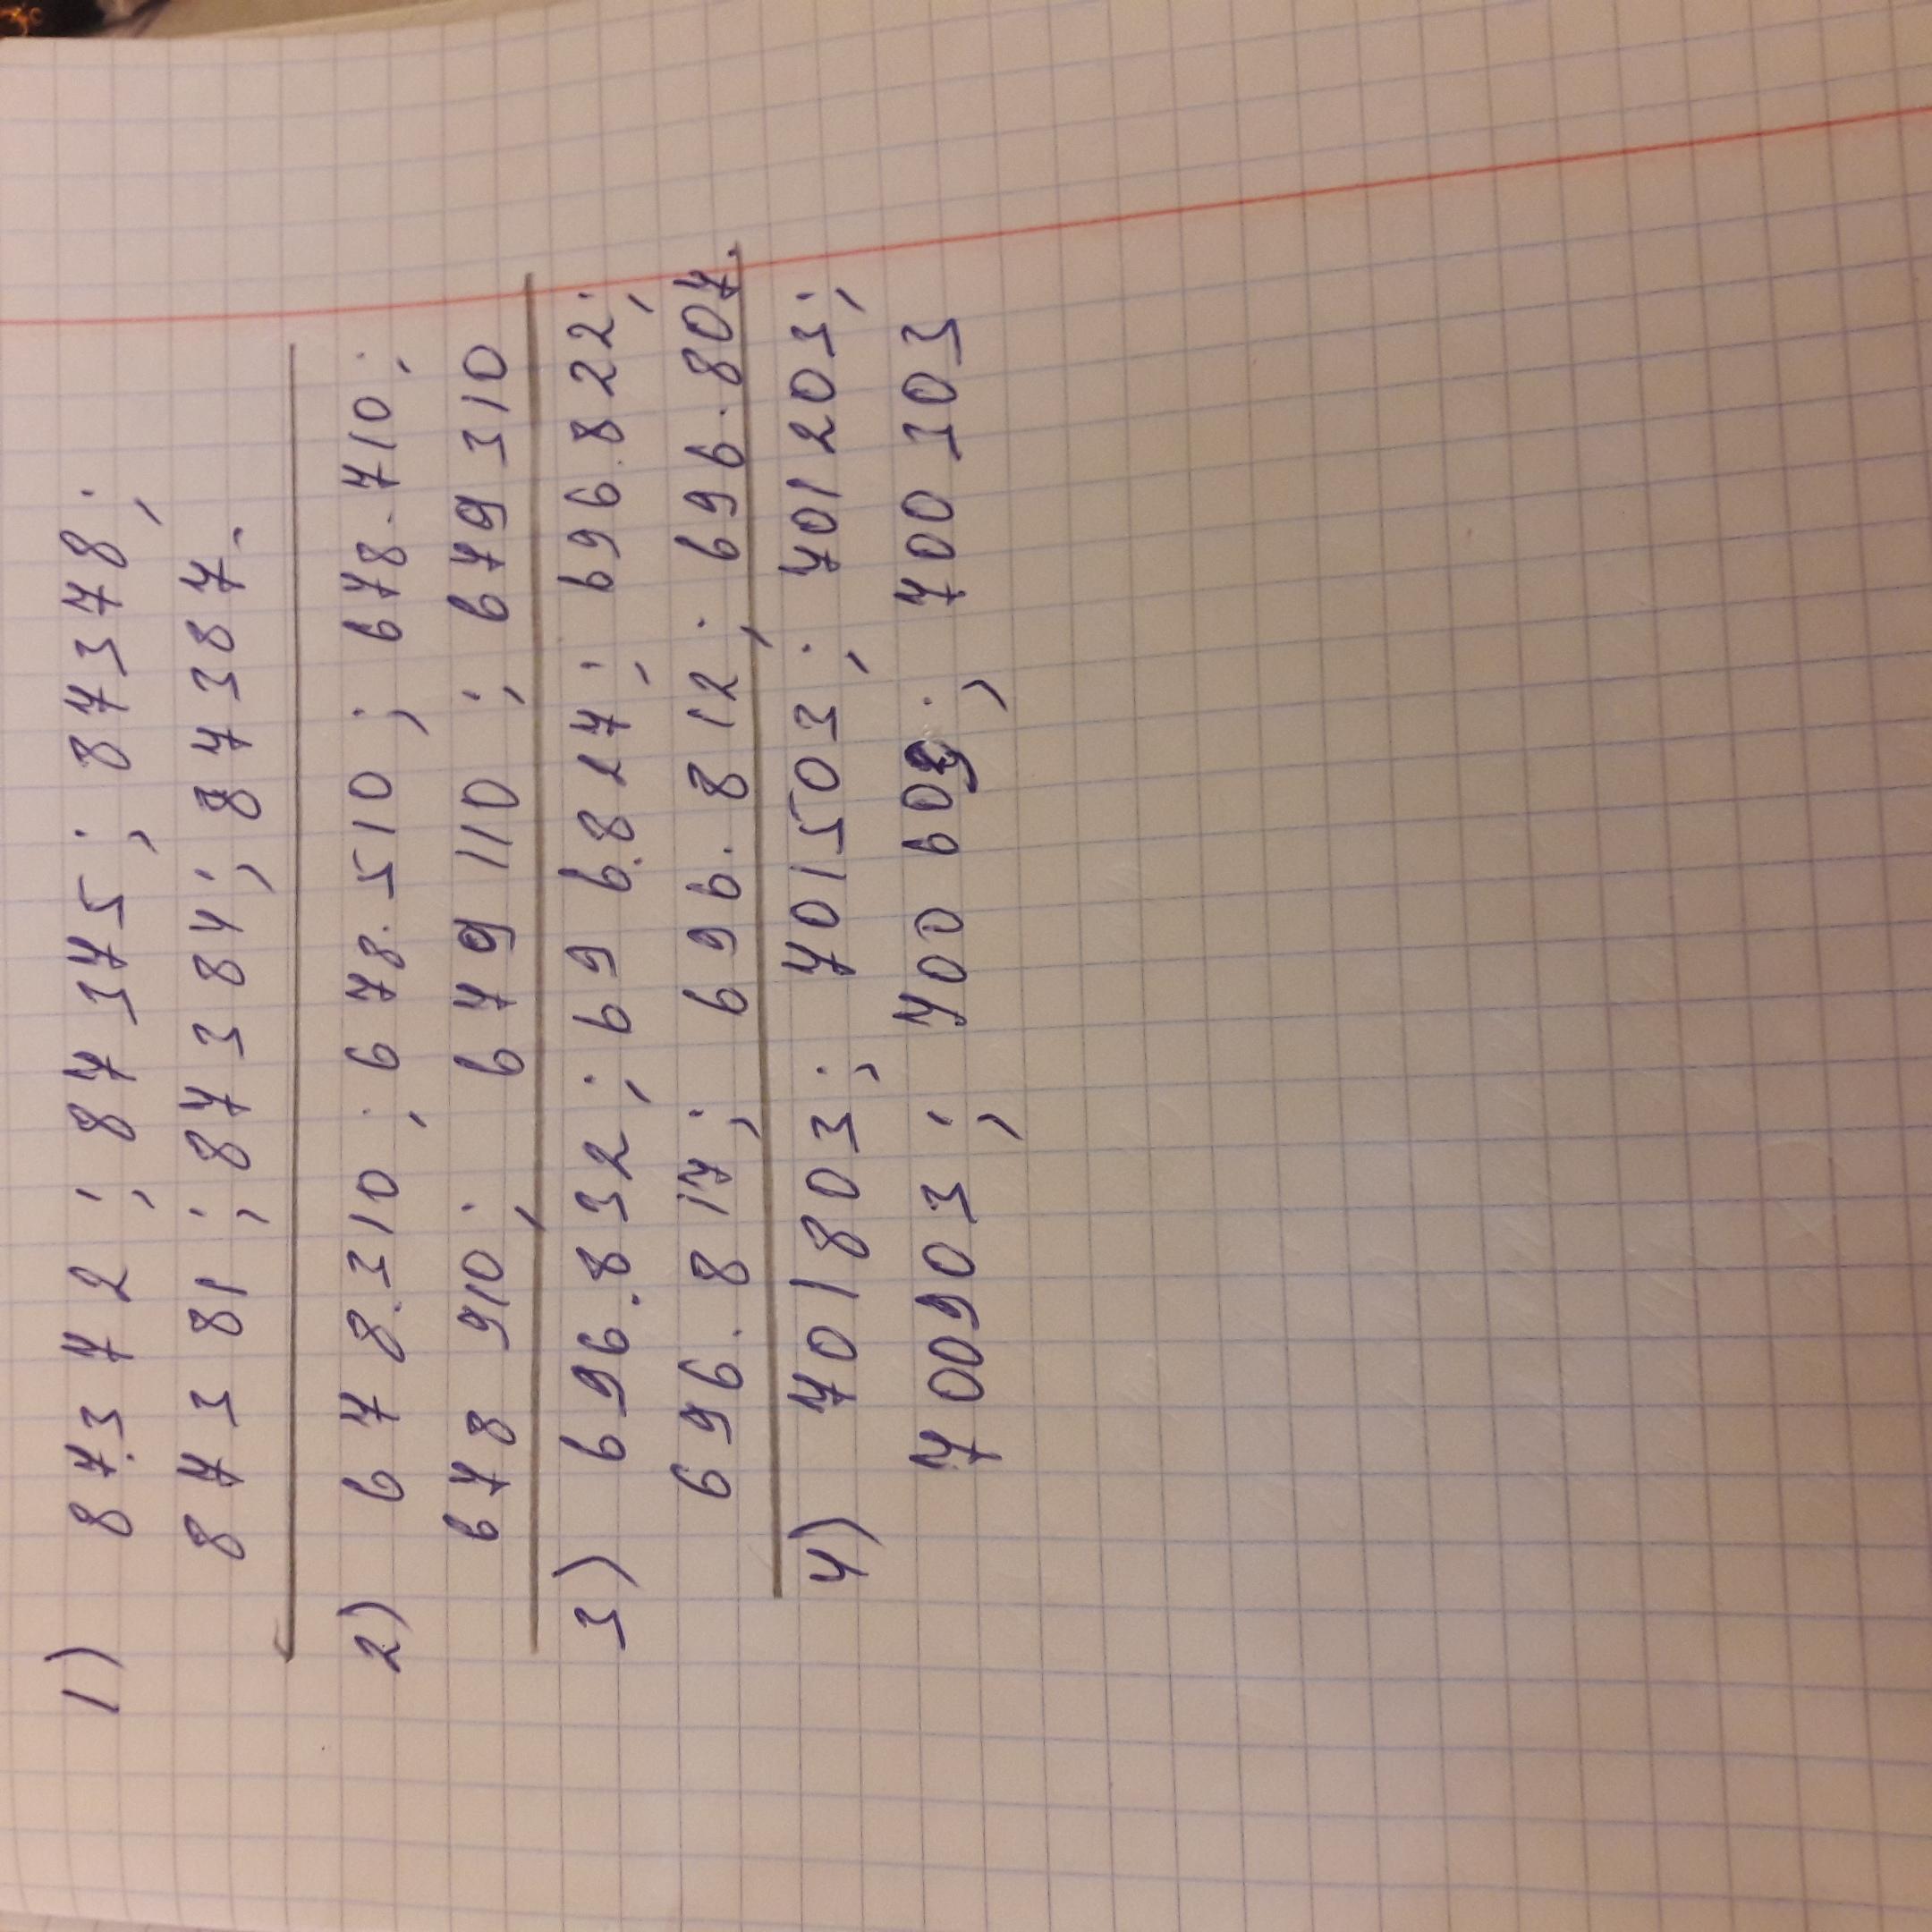 1) 87.372; 87375; 87378;
87381; 87384; 87387.
2) 678.310; 678.510; 678.710;
678 910; 679 110; 679 310
3) 696.832; 696.827; 696.822;
696.817; 696.812; 696.807.
4) 701803; 701503; 701203;
700903; 700 609; 700 303